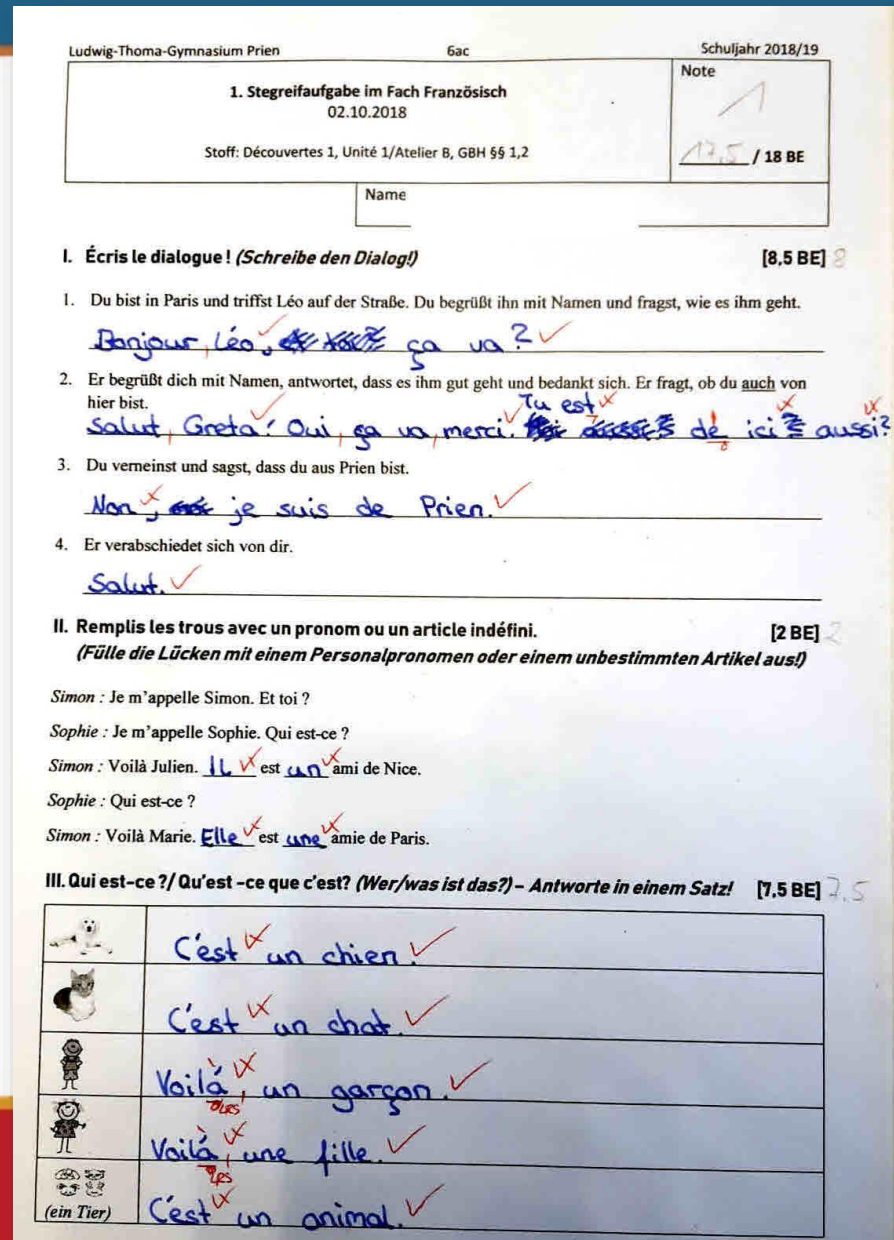 Ludwig-Thoma-Gymnasium Prien 6ac Schuljahr 2018/19
1. Stegreifaufgabe im Fach Französisch
02.10.2018
Stoff: Découvertes 1, Unité 1/Atelier B, GBH §§ 1,2
Note
1
17,5 / 18 BE
Name
I. Écris le dialogue ! (Schreibe den Dialog!) [8,5 BE] 8
1. Du bist in Paris und triffst Léo auf der Straße. Du begrüßt ihn mit Namen und fragst, wie es ihm geht.
Bonjour, Léo, ça va?
2. Er begrüßt dich mit Namen, antwortet, dass es ihm gut geht und bedankt sich. Er fragt, ob du auch von
hier bist.
Tu est
Salut, Greta! Oui, ça va, merci. dé ici aussi?
3. Du verneinst und sagst, dass du aus Prien bist.
Non, je suis de Prien.
4. Er verabschiedet sich von dir.
Salut.
II. Remplis les trous avec un pronom ou un article indéfini. [2 BE] 2
(Fülle die Lücken mit einem Personalpronomen oder einem unbestimmten Artikel aus!)
Simon : Je m'appelle Simon. Et toi ?
Sophie : Je m'appelle Sophie. Qui est-ce ?
Simon : Voilà Julien. Il est un ami de Nice.
Sophie : Qui est-ce ?
Simon : Voilà Marie. Elle est une amie de Paris.
III. Qui est-ce ?/ Qu'est -ce que c'est? (Wer/was ist das?) – Antworte in einem Satz! [7,5 BE] 7.5
C'est un chien.
C'est un chat.
Voilá, un garçon.
Voilá, une fille.
(ein Tier) C'est un animal.